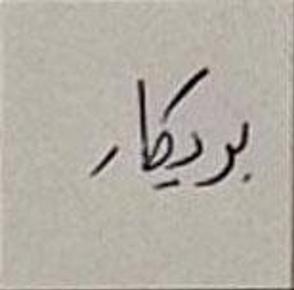 بردیکار